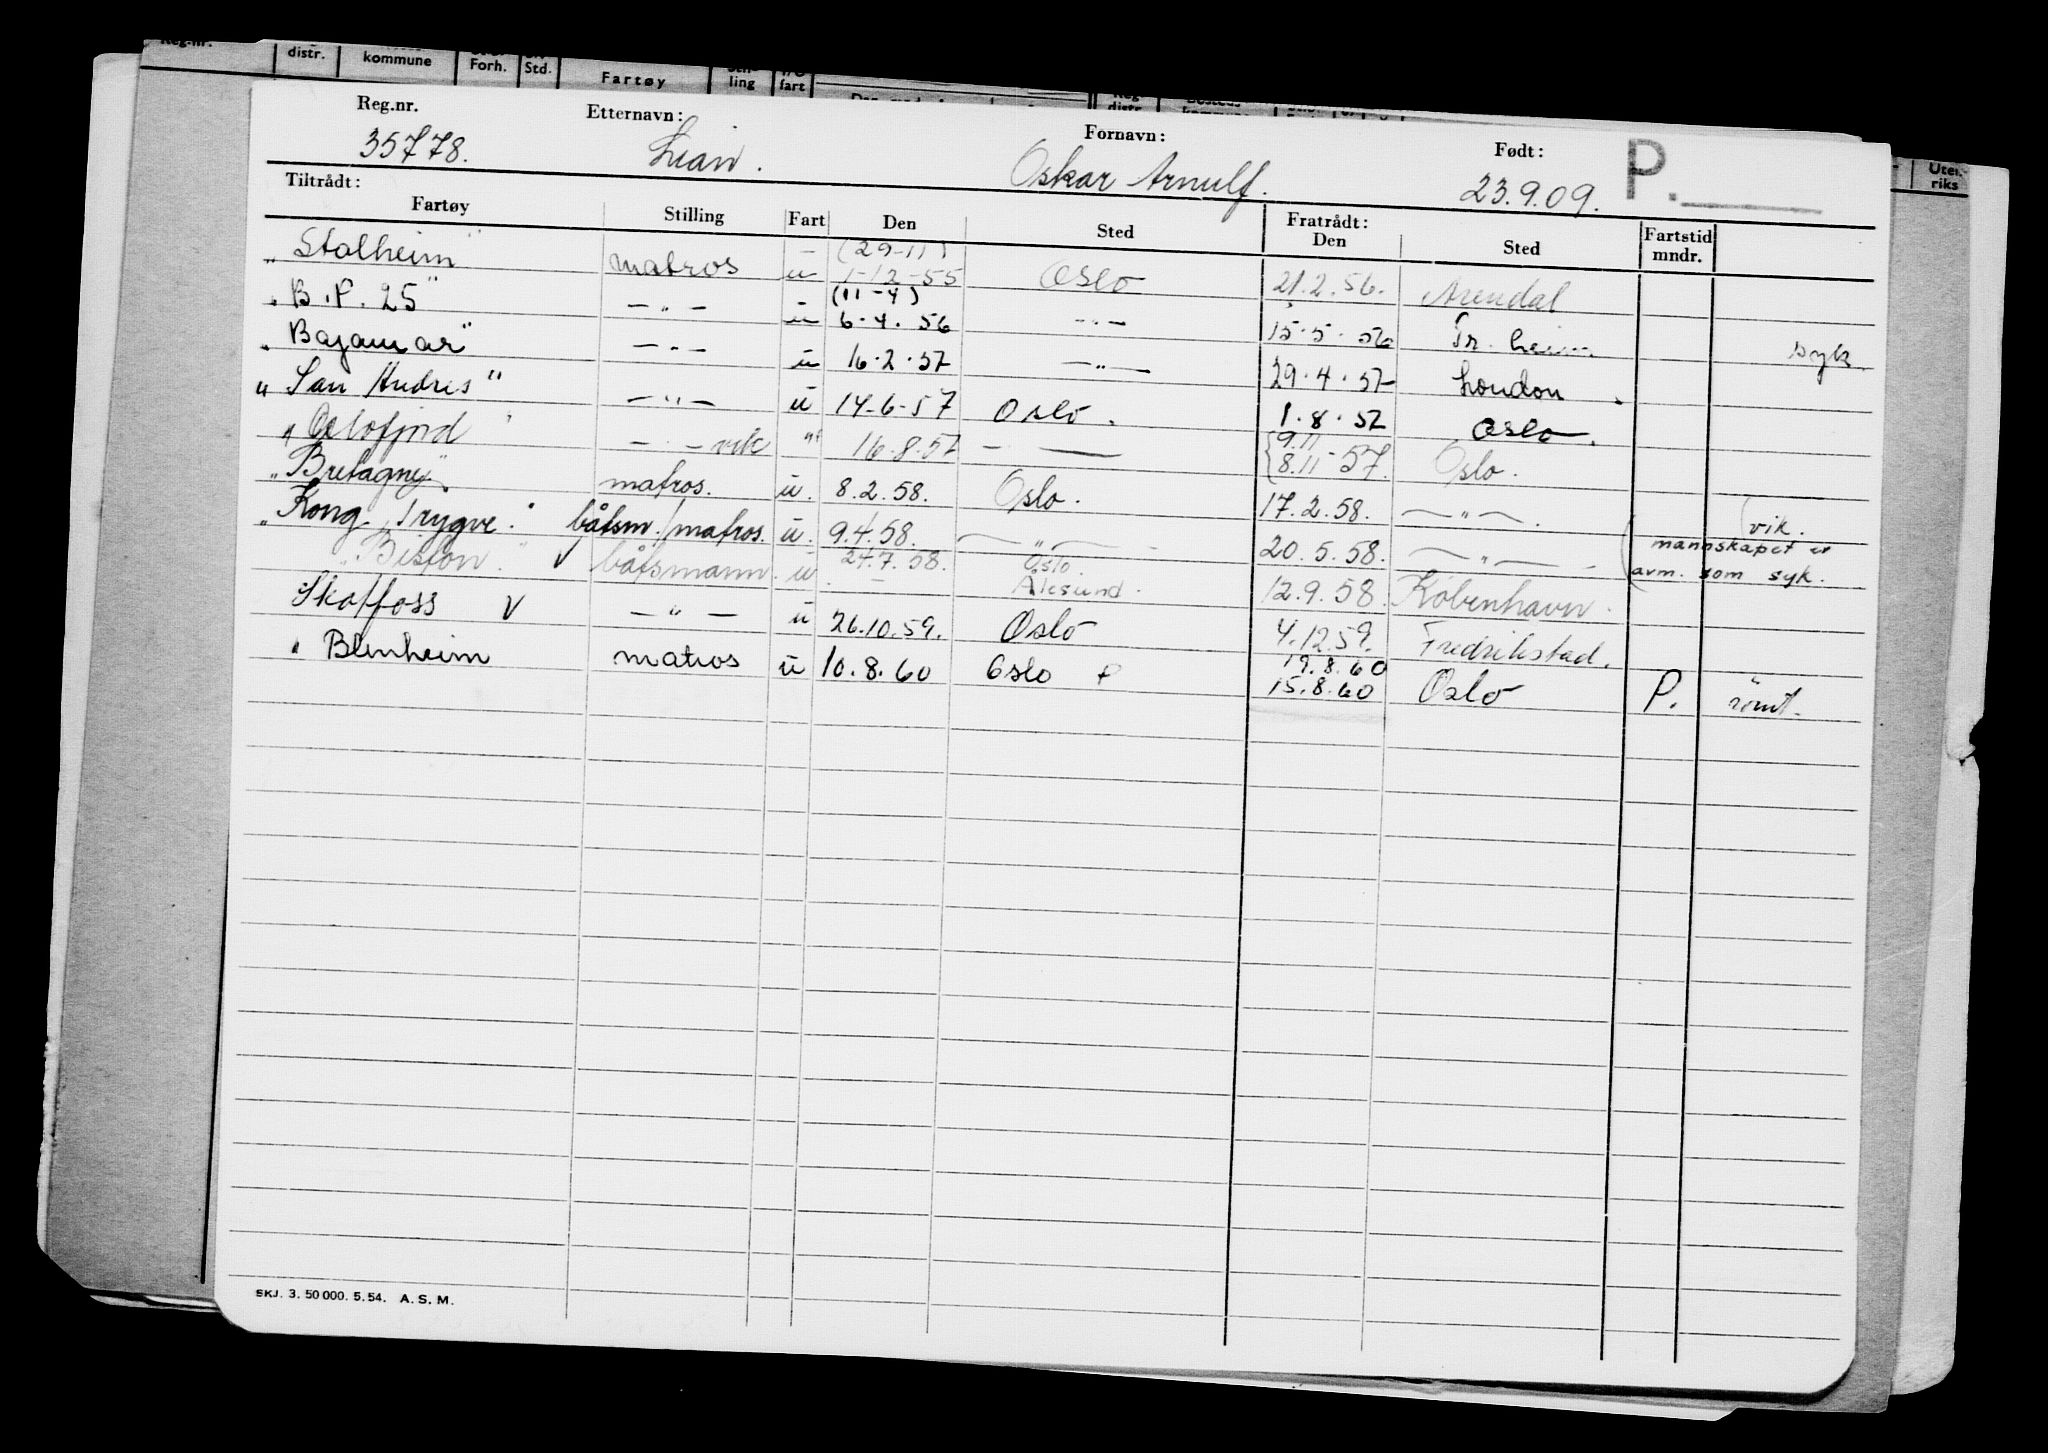 Reg.nr. distr. kommune Forh. Std. Fartøy ling fart
Uten-
riks
Reg.nr. Etternavn: Fornavn: Født: P.
35778. Lian. Oskar Arnulf. 23.9.09.
Tiltrådt: Fratrådt:
Fartøy Stilling Fart Den Sted Den Sted Fartstid mndr.
(29-11)
"Stalheim" matros u 1-12-55 Oslo 21.2.56. Arendal
(11-4)
"B.P. 25" — " — u 6.4.56 — " — 15.5.56 Tr.heim syk
"Bajamar" — " — u 16.2.57 — " — 29.4.57 London
"San Andres" — " — u 14-6-57 Oslo. 1.8.57 Oslo.
9.11
"Oslofjord" — " — vik 16.8.57 — " — 8.11-57. Oslo.
"Bretagne" matros. u. 8.2.58. Oslo. 17.2.58. — " — . (vik.
"Kong Trygve." båtsm./matros. u. 9.4.58. — " — 20.5.58. — " — (mannskapet er
avm. som syk.
"Biston." V båtsmann. u. 24.7.58. Oslo. Ålesund. 12.9.58. København.
Skotfoss V — " — u 26.10.59. Oslo 4.12.59. Fredrikstad.
19.8.60
" Blenheim matros u 10.8.60 Oslo P 15.8.60 Oslo P. römt.
SKJ. 3. 50 000. 5. 54. A. S. M.